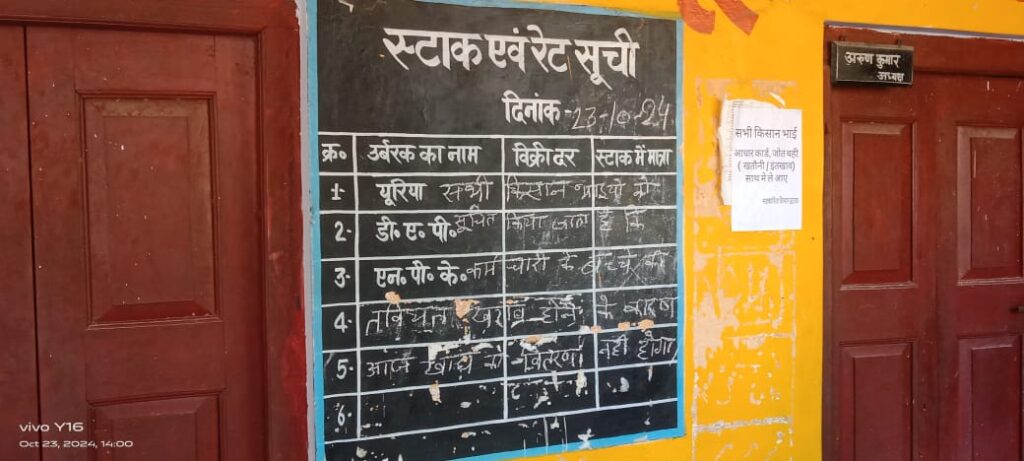 स्टाक एवं रेट सूची
दिनांक-23-10-24
क्र० उर्बरक का नाम विक्री दर स्टाक में मात्रा
1- यूरिया सभी किसान भाइयो को
2- डी० ए० पी० सूचित किया जाता है कि
3- एन० पी० के० कर्मचारी के बच्चे की
4- तबियत खराब होने के कारण
5- आज खाद्य का वितरण नही होगा
6-
अरुण कुमार
अध्यक्ष
सभी किसान भाई
आधार कार्ड, जोत बही
( खतौनी / इंतखाव)
साथ मे ले आए
vivo Y16
Oct 23, 2024, 14:00